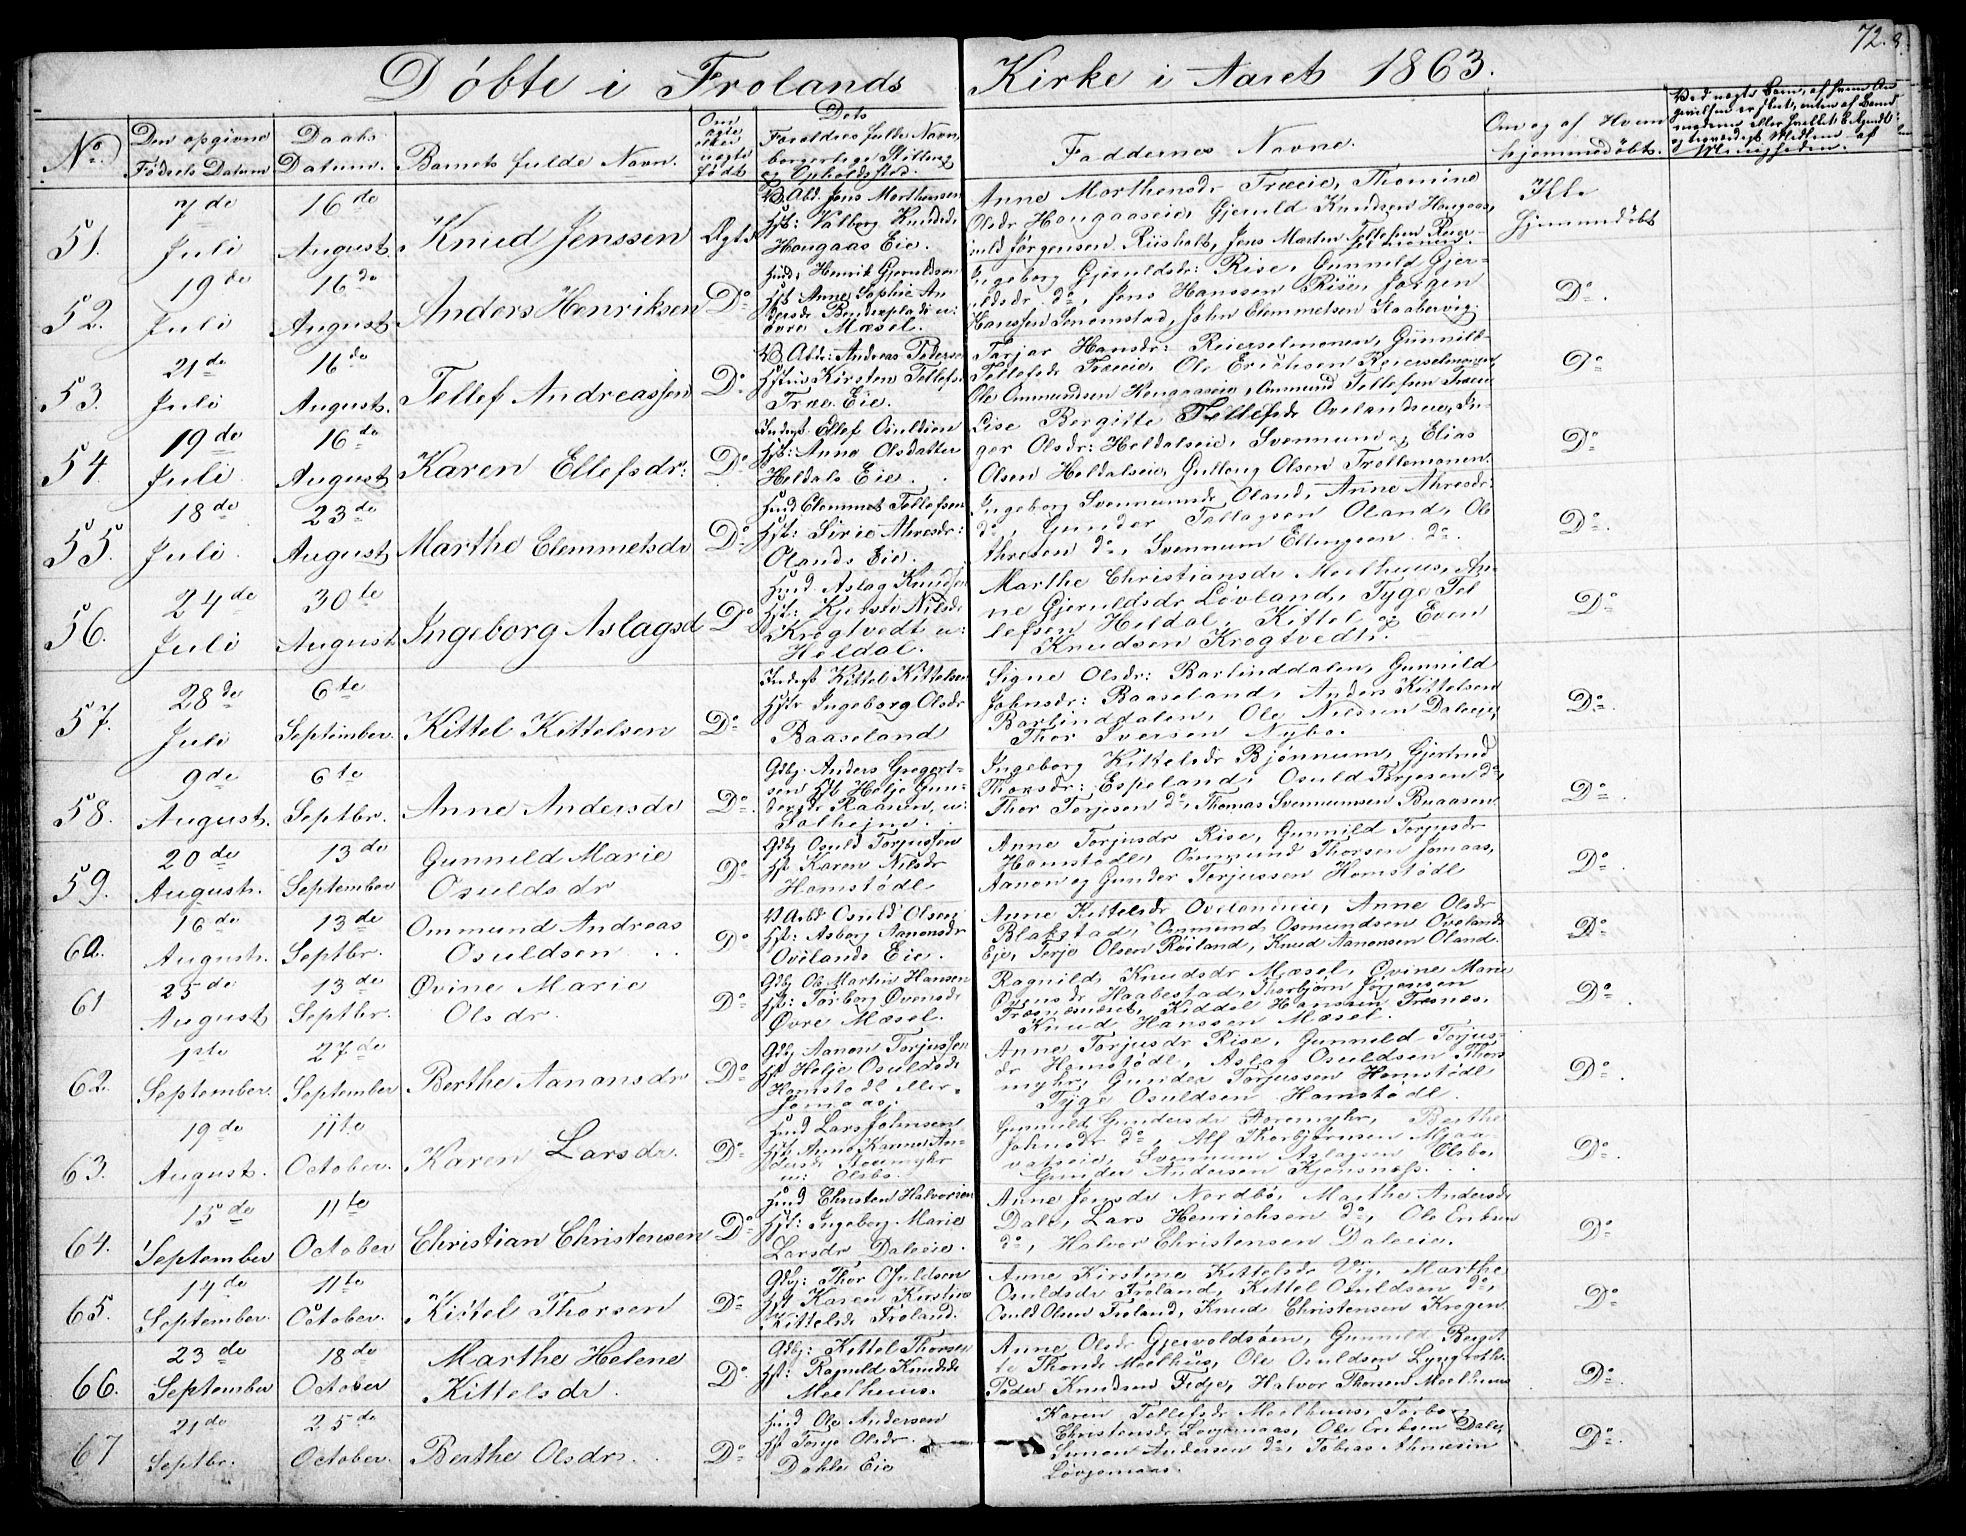 72.
Døbte i Frolands Kirke i Aaret 1863.
No. Den opgivne Fødsels Datum Daabs Datum. Barnets fulde Navn. Om ægte eller uægte født Dets Forældres fulde Navn, borgerlige Stilling og Opholdssted. Faddernes Navne. Om og af Hvem hjemmedøbt.
51. 7de Juli 16de August Knud Jenssen Ægte
Abd. Jens Morthensen
Hst: Valborg Knudsdr
Hougaas Eie.
Anne Morthensdr Træeie, Thomine
Olsdr Hougaaseie, Gjeruld Knudsen Hougaas,
Jørgensen Riisholt, Jens Martin Tellefsen
Ikke
hjemmedøbt
52. 19de Juli 16de August Anders Henriksen Do
Husmd: Henrik Gjeruldsen
Hst Anne Sophie An
dersdr
øvre Mæsel.
Ingeborg Gjeruldsdr: Rise, Gunnild Gjer-
uldsdr do, Jens Hanssen Rise, Jørgen
Hanssen John Clemmetsen
Do.
53. 21de Juli 16de August. Tellef Andreassen Do
Abdr: Andreas Pedersen
Hstru Kirsten Tellefsdr
Træ Eie.
Tarjer Hansdr: Reierselmonen, Gunnild
Tellefsdr Træeie, Ole Erichsen Reierselmonen,
Ole Ommundsen Hougaaseie, Ommund Tellefsen Træeie
Do
54. 19de Juli 16de August Karen Ellefsdr: Do
Inderst. Ellef Osuldsen
Hst: Anne Olsdatter
Heldals Eie.
Lise Bergitte Tellefsdr Ovelandseie, In-
ger Olsdr: Heldalseie, Svennum og Elias
Olsen Heldalseie, Gulleug Olsen Trollemonen.
Do
55. 18de Juli 23de August Marthe Clemmetsdr Do
Husmd Clemmet Tellefsen
Hst: Sirie Ahresdr:
Olands Eie.
Ingeborg Svennumsdr Oland, Anne Ahresdr:
do, Gunder Tellagsen Oland, Ole
Ahresen do, Svennum Ellingsen do.
Do.
56. 24de Juli 30te August Ingeborg Aslagsd Do
Husmd Aslag Knudsen
Hst: Kjersti Nilsdr
Krogtvedt u:
Heldal.
Marthe Christiansdr Moelhuus, An-
ne Gjeruldsdr Løvland, Tyge Tel
lefsen Heldal, Kittel og Even
Knudsen Krogtvedt.
Do.
57. 28de Juli 6te September. Kittel Kittelsen Do
Inderst Kittel Kittelsen
Hstr Ingeborg Olsdr
Baaseland
Signe Olsdr: Barlinddalen, Gunnild
Johnsdr: Baaseland, Anders Kittelsen
Barlinddalen, Ole Nilssen Daleeie,
Thor Iversen Nybo.
Do.
58. 9de August. 6te Septbr. Anne Andersdr Do.
Gdbj. Anders Gregert-
sen Hst Helje Gun-
dersdr Raasen, u:
Ingeborg Kittelsdr Bjønnum, Gjertrud
Thorsdr: Espeland, Osuld Torjesen do,
Thor Torjesen do, Thomas Svennumsen Buaasen
Do.
59. 20de August. 13de September Gunnild Marie
Osuldsdr Do
Gdbj Osuld Torjussen
Hst Karen Nilsdr
Homstødl
Anne Torjusdr Rise, Gunnild Torjusdr
Homstødl, Ommund Thorsen Jomaas,
Aanon og Gunder Torjussen Homstødl
Do.
60. 16de August. 13de Septbr. Ommund Andreas
Osuldsen Do
Arbd Osuld Olsen
Hst: Asborg Aanonsdr
Ovelands Eie.
Anne Kittelsdr Anne Olsdr
Blakstad, Ommund Osmundsen Ovelands
Eje, Terje Olsen Røiland, Knud Aanonsen Oland.
Do
61 25de August 13de Septbr. Øvine Marie
Olsdr. Do
Gdbj Ole Martin Hansen
Hst: Torborg Øvensdr
Øvre Mæsel.
Ragnild Knudsdr Mæsel, Øvine Marie
Øvensdr Haabestad, Thorbjørn Jørgensen
Træsnæs, Kiddel Hanssen Træsnæs,
Knud Hanssen Mæsel.
Do.
62. 1ste September. 27de September Berthe Aanonsdr Do
Gdbj Aanon Torjussen
Hst Helje Osuldsdr
Homstødl eller
Jomaas.
Anne Torjusdr Rise, Gunnild Torjus-
dr Homstødl, Aslag Osuldsen Thors
myhr, Gunder Torjussen Homstødl
Tyge Osuldsen Homstødl.
Do.
63. 19de August. 11te October. Karen Larsdr. Do
Husmd Lars Johnsen
Hst Anne Karine An-
dersdr Aasemyhr
u: Olsbo.
Gunnild Gundersdr Aasemyhr, Berthe
Johnsdr do, Alf Thorbjørnsen Mjaa-
vatseie, Svennum Aslagsen Olsbo,
Gunder Andersen Kjensnæss.
Do.
64. 15de September 11te October Christian Christensen Do
Husmd Christen Halvorsen
Hst: Ingeborg Marie
Larsdr Daleeie.
Anne Jensdr Nordbø, Marthe Andersdr
Dale, Lars Henrichsen do, Ole Eriksen
do, Halvor Christensen Daleeie.
Do.
65. 14de September. 11te October. Kittel Thorsen Do
Gdbj: Thor Osuldsen
Hst Karen Kirstine
Kittelsdr Froland.
Anne Kirstine Kittelsdr Vig, Marthe
Osuldsdr Froland, Kittel Osuldsen do,
Osuld Olsen Froland, Knud Christensen Krogen.
Do
66. 23de September 18de October Marthe Helene
Kittelsdr. Do
Gdbj: Kittel Thorsen
Hst: Ragnild Knudsdr
Moelhuus.
Anne Olsdr Gjervoldsøen, Gunnild Bergit
te Thorsdr Moelhuus, Ole Osuldsen Lyngroth.
Peder Knudsen Fidje, Halvor Thorsen Moelhuus
Do.
67 21de Septbr. 25de October. Berthe Olsdr. Do
Husmd Ole Andersen
Hst Terje Olsdr.
Dahle Eie
Karen Tellefsdr Moelhuus, Torborg
Christensdr Løvjomaas, Ole Eriksen Dale,
Simon Andersen do, Tobias
Løvjomaas.
Do.